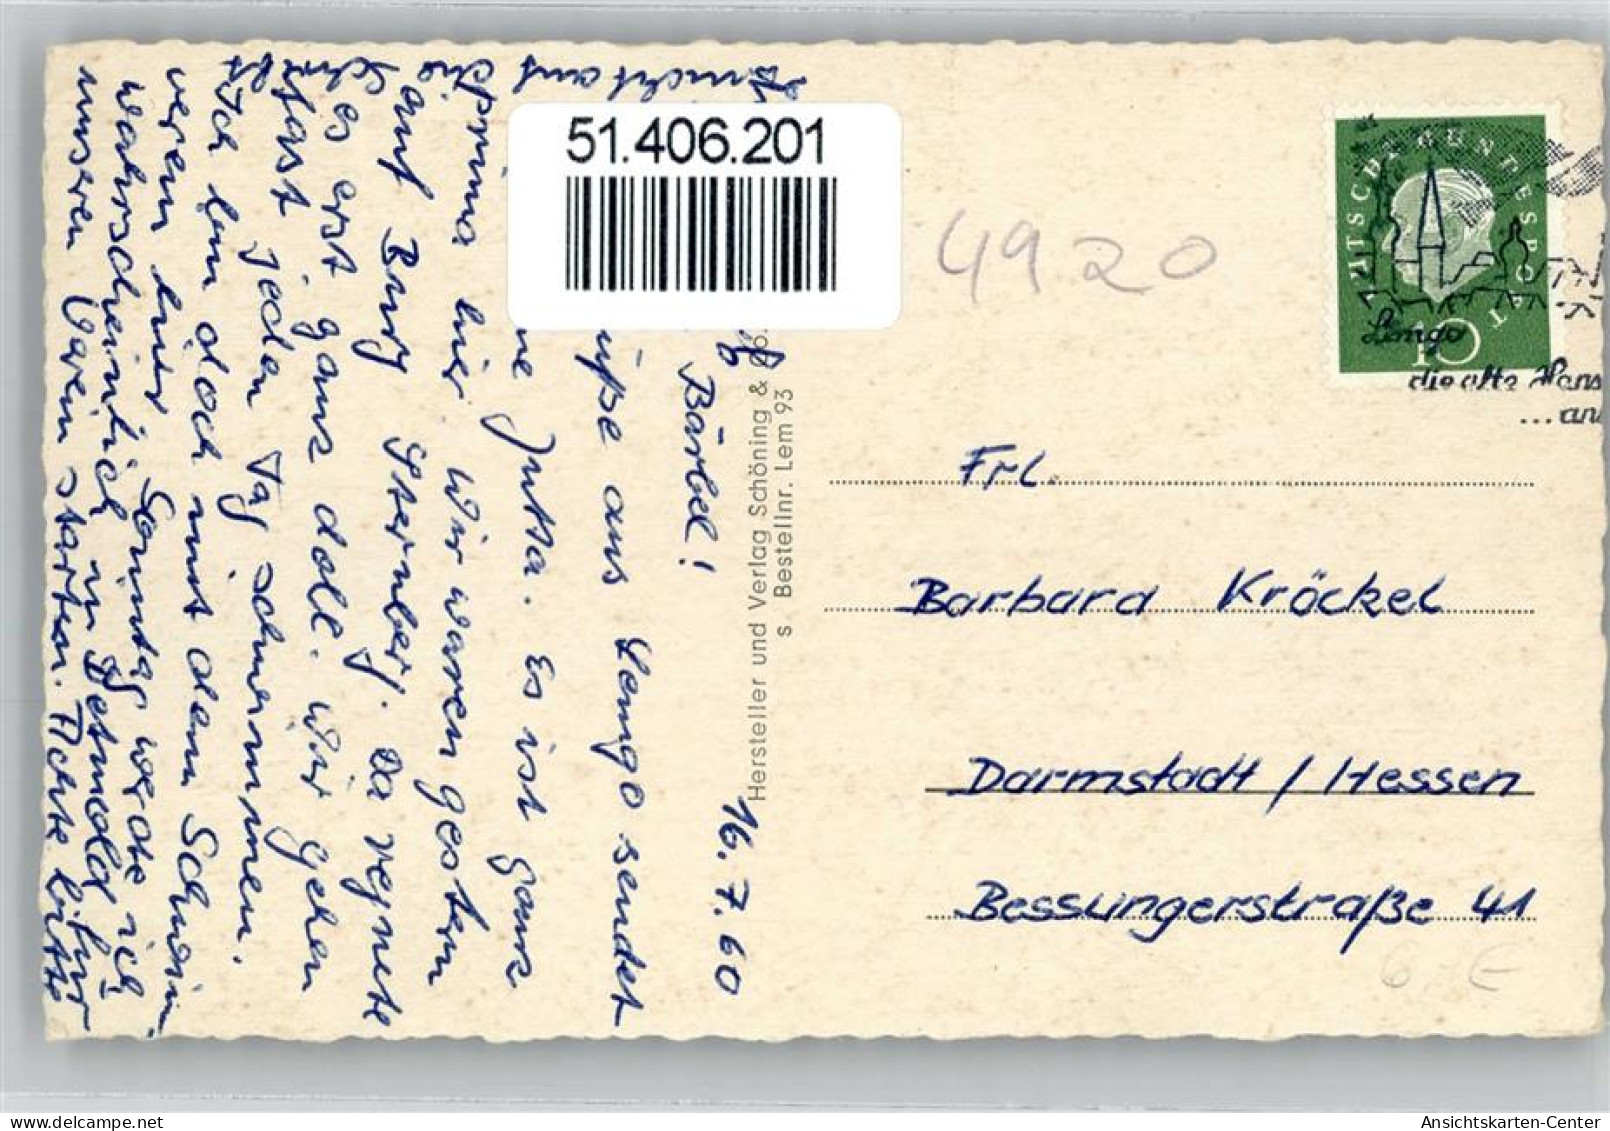 51.406.201
4920
DEUTSCHE BUNDESPOST
10
Lemgo
die alte Hans
...
16.7.60
Bärbel!
üße aus Lemgo sendet
ne Jutta. Es ist ganz
prima hier. Wir waren gestern
auf Burg Sternberg. Da regnete
es erst ganz doll. Wir gehen
fast jeden Tag schwimmen.
Ich bin doch mit dem Schwimm
verein hier. Sonntag werde ich
wahrscheinlich in Detmold für
unseren Verein starten. Achte bitte
Hersteller und Verlag Schöning & Co.
s Bestellnr. Lem 93
Frl.
Barbara Kröckel
Darmstadt / Hessen
Bessungerstraße 41
6.- €
Ansichtskarten-Center